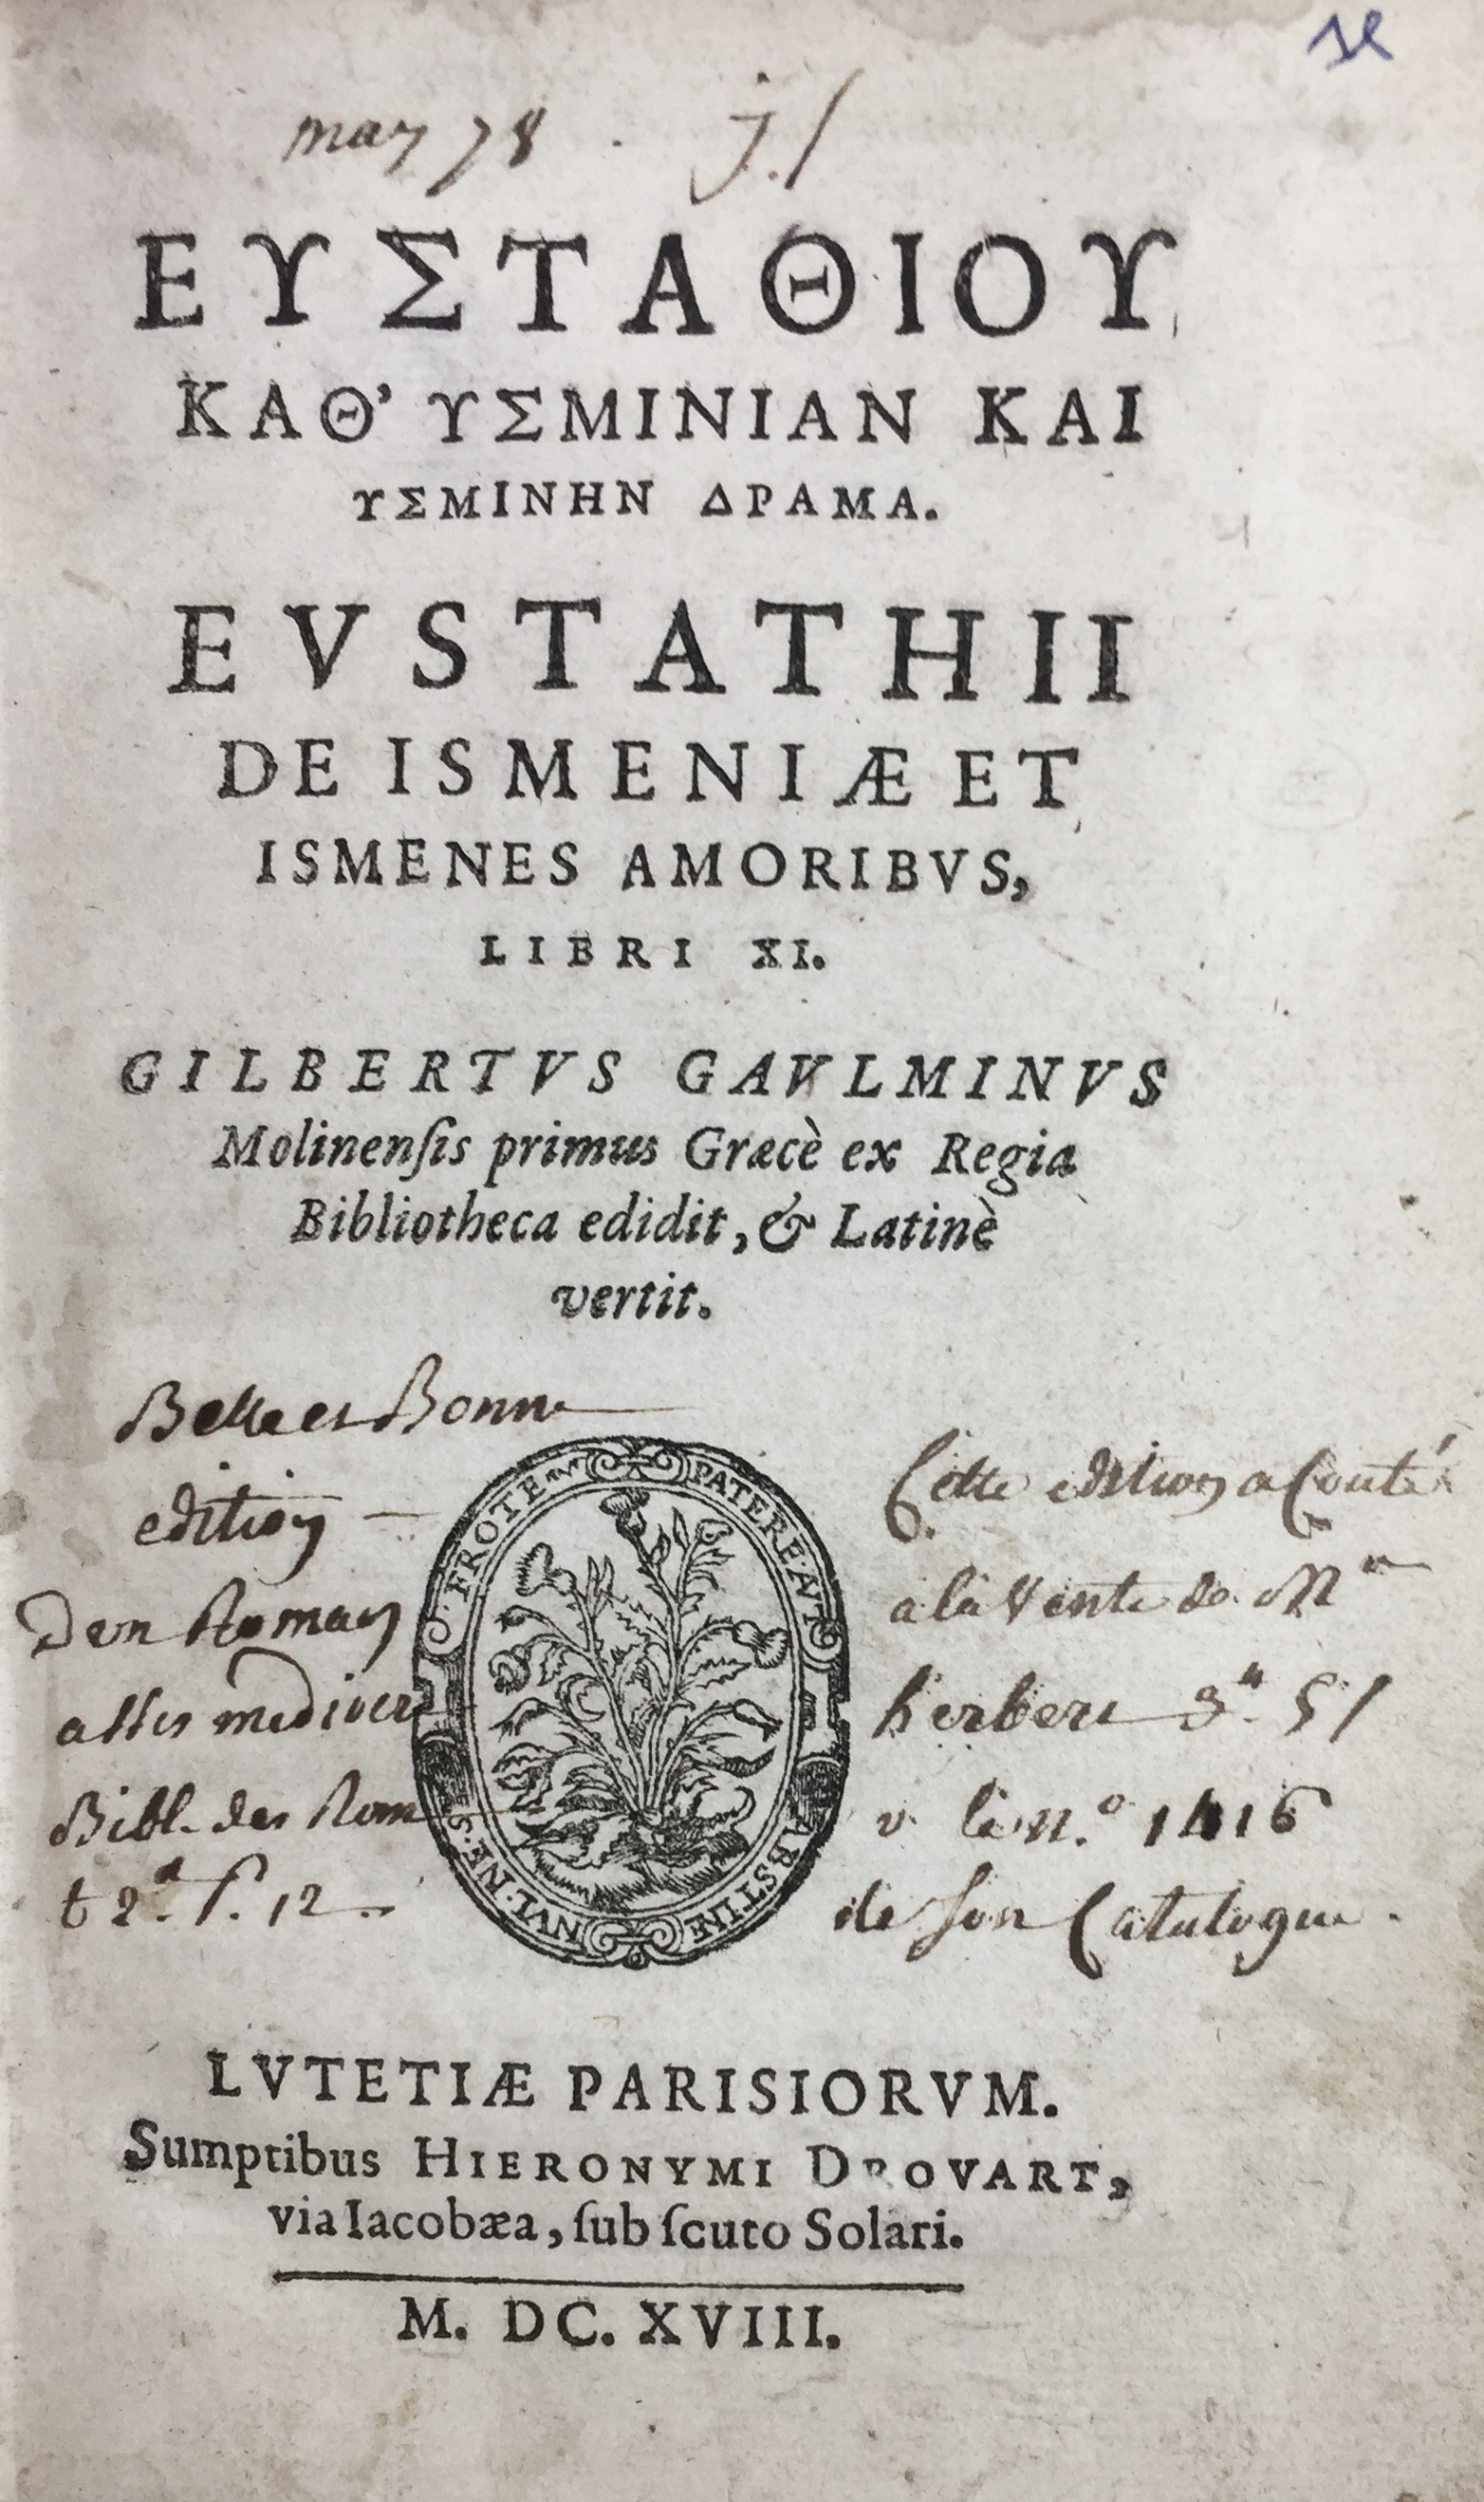 may 78. j./
ΕΥΣΤΑΘΙΟΥ
ΚΑΘ' ΥΣΜΙΝΙΑΝ ΚΑΙ
ΥΣΜΙΝΗΝ ΔΡΑΜΑ.
EVSTATHII
DE ISMENIÆ ET
ISMENES AMORIBVS,
LIBRI XI.
GILBERTVS GAVLMINVS
Molinenſis primus Græcè ex Regia
Bibliotheca edidit, & Latinè
vertit.
Belle et Bonne
edition
Den Roman
asses mediocre
Bibl. des Rom
t 2.d p. 12
NVL NE S'Y FROTE
PATERE AVT ABSTINE
Cette edition a Couté
a la Vente de Mr
herbert 3tt 5/
v. le n.º 1416
de son Catalogue.
LVTETIÆ PARISIORVM.
Sumptibus HIERONYMI DROVART,
via Iacobæa, ſub ſcuto Solari.
M. DC. XVIII.